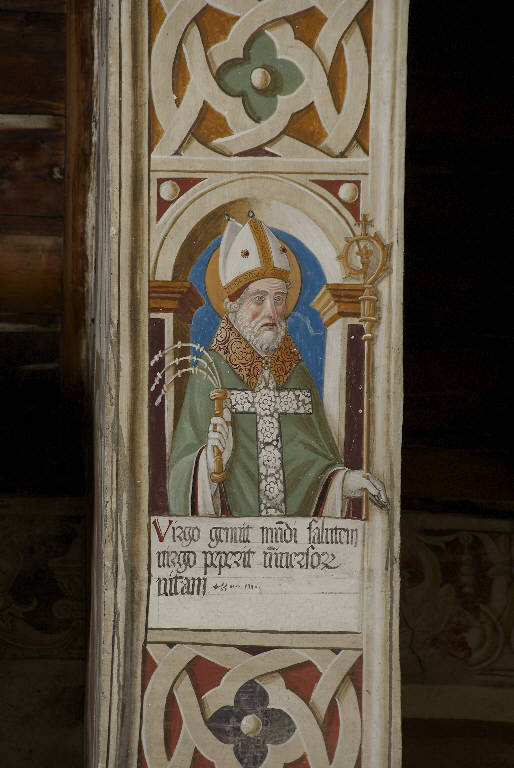 Virgo genuit mūdi salutem
virgo peperit ūniuersor
uitam